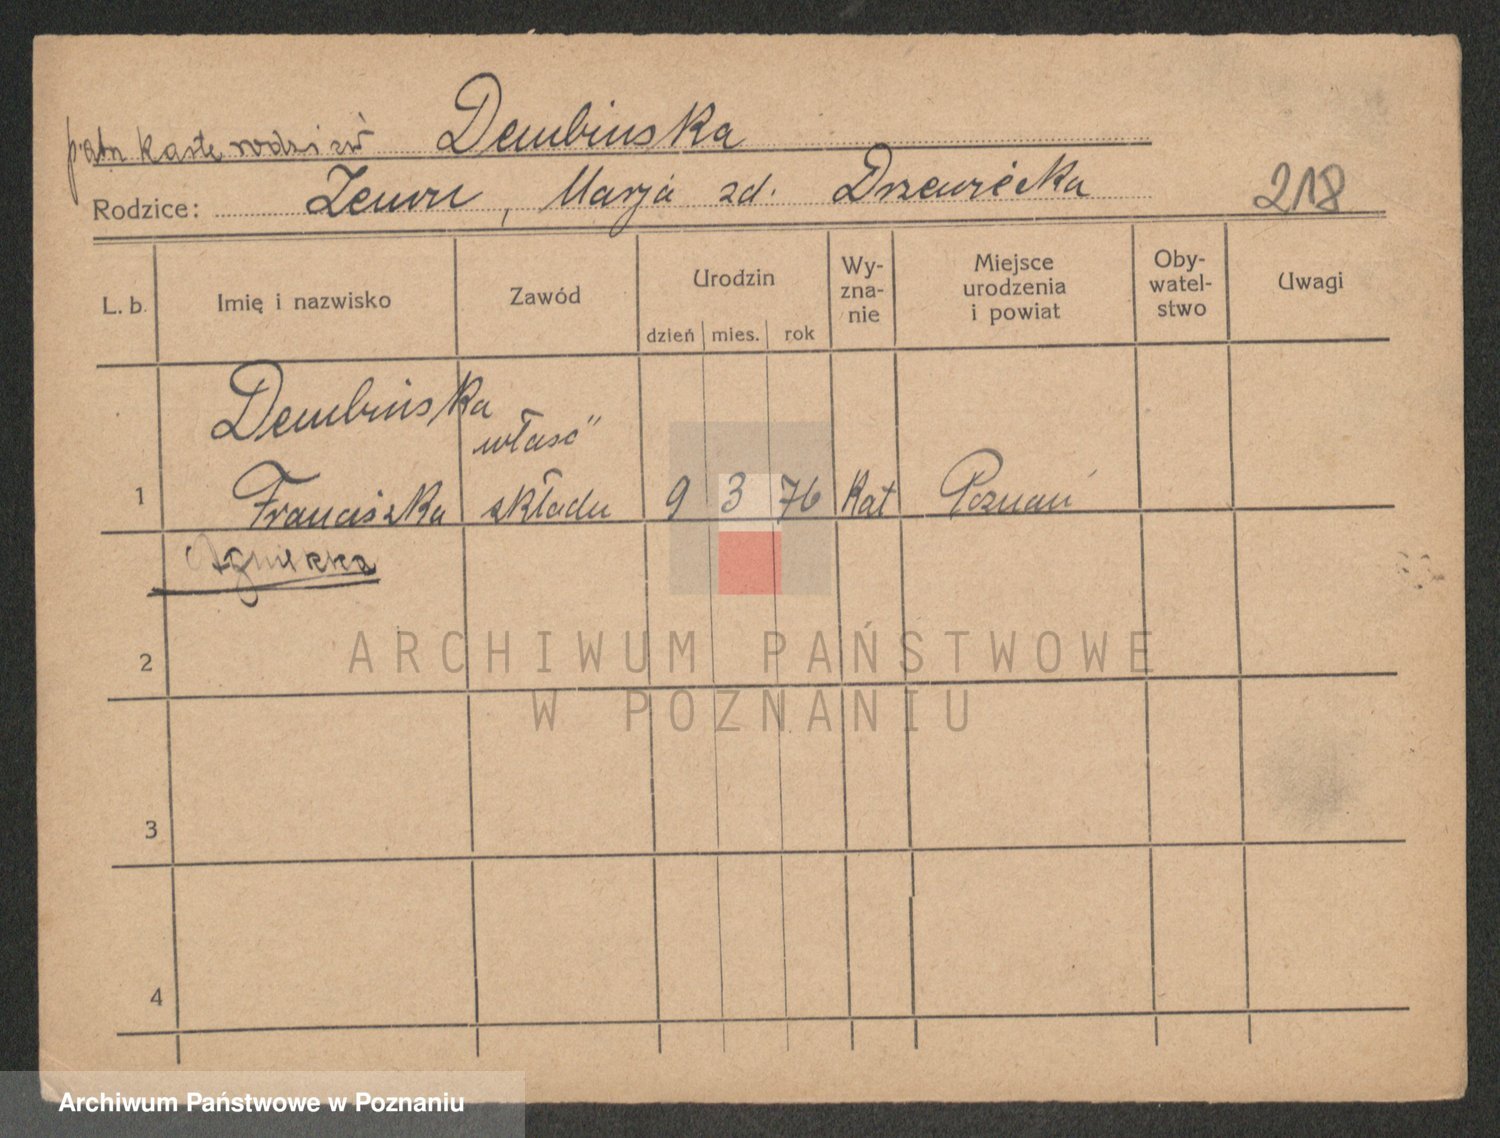 patrz kartę rodziców Dembinska
Rodzice: Zenon, Marja zd. Drzewiecka
218
L. b. Imię i nazwisko Zawód Urodzin dzień mies. rok Wy-zna-nie Miejsce urodzenia i powiat Oby-watel-stwo Uwagi
Dembińska
właśc"
1 Franciszka składu 9 3 76 kat Poznań
Agnieszka
2
ARCHIWUM PAŃSTWOWE
W POZNANIU
3
4
Archiwum Państwowe w Poznaniu